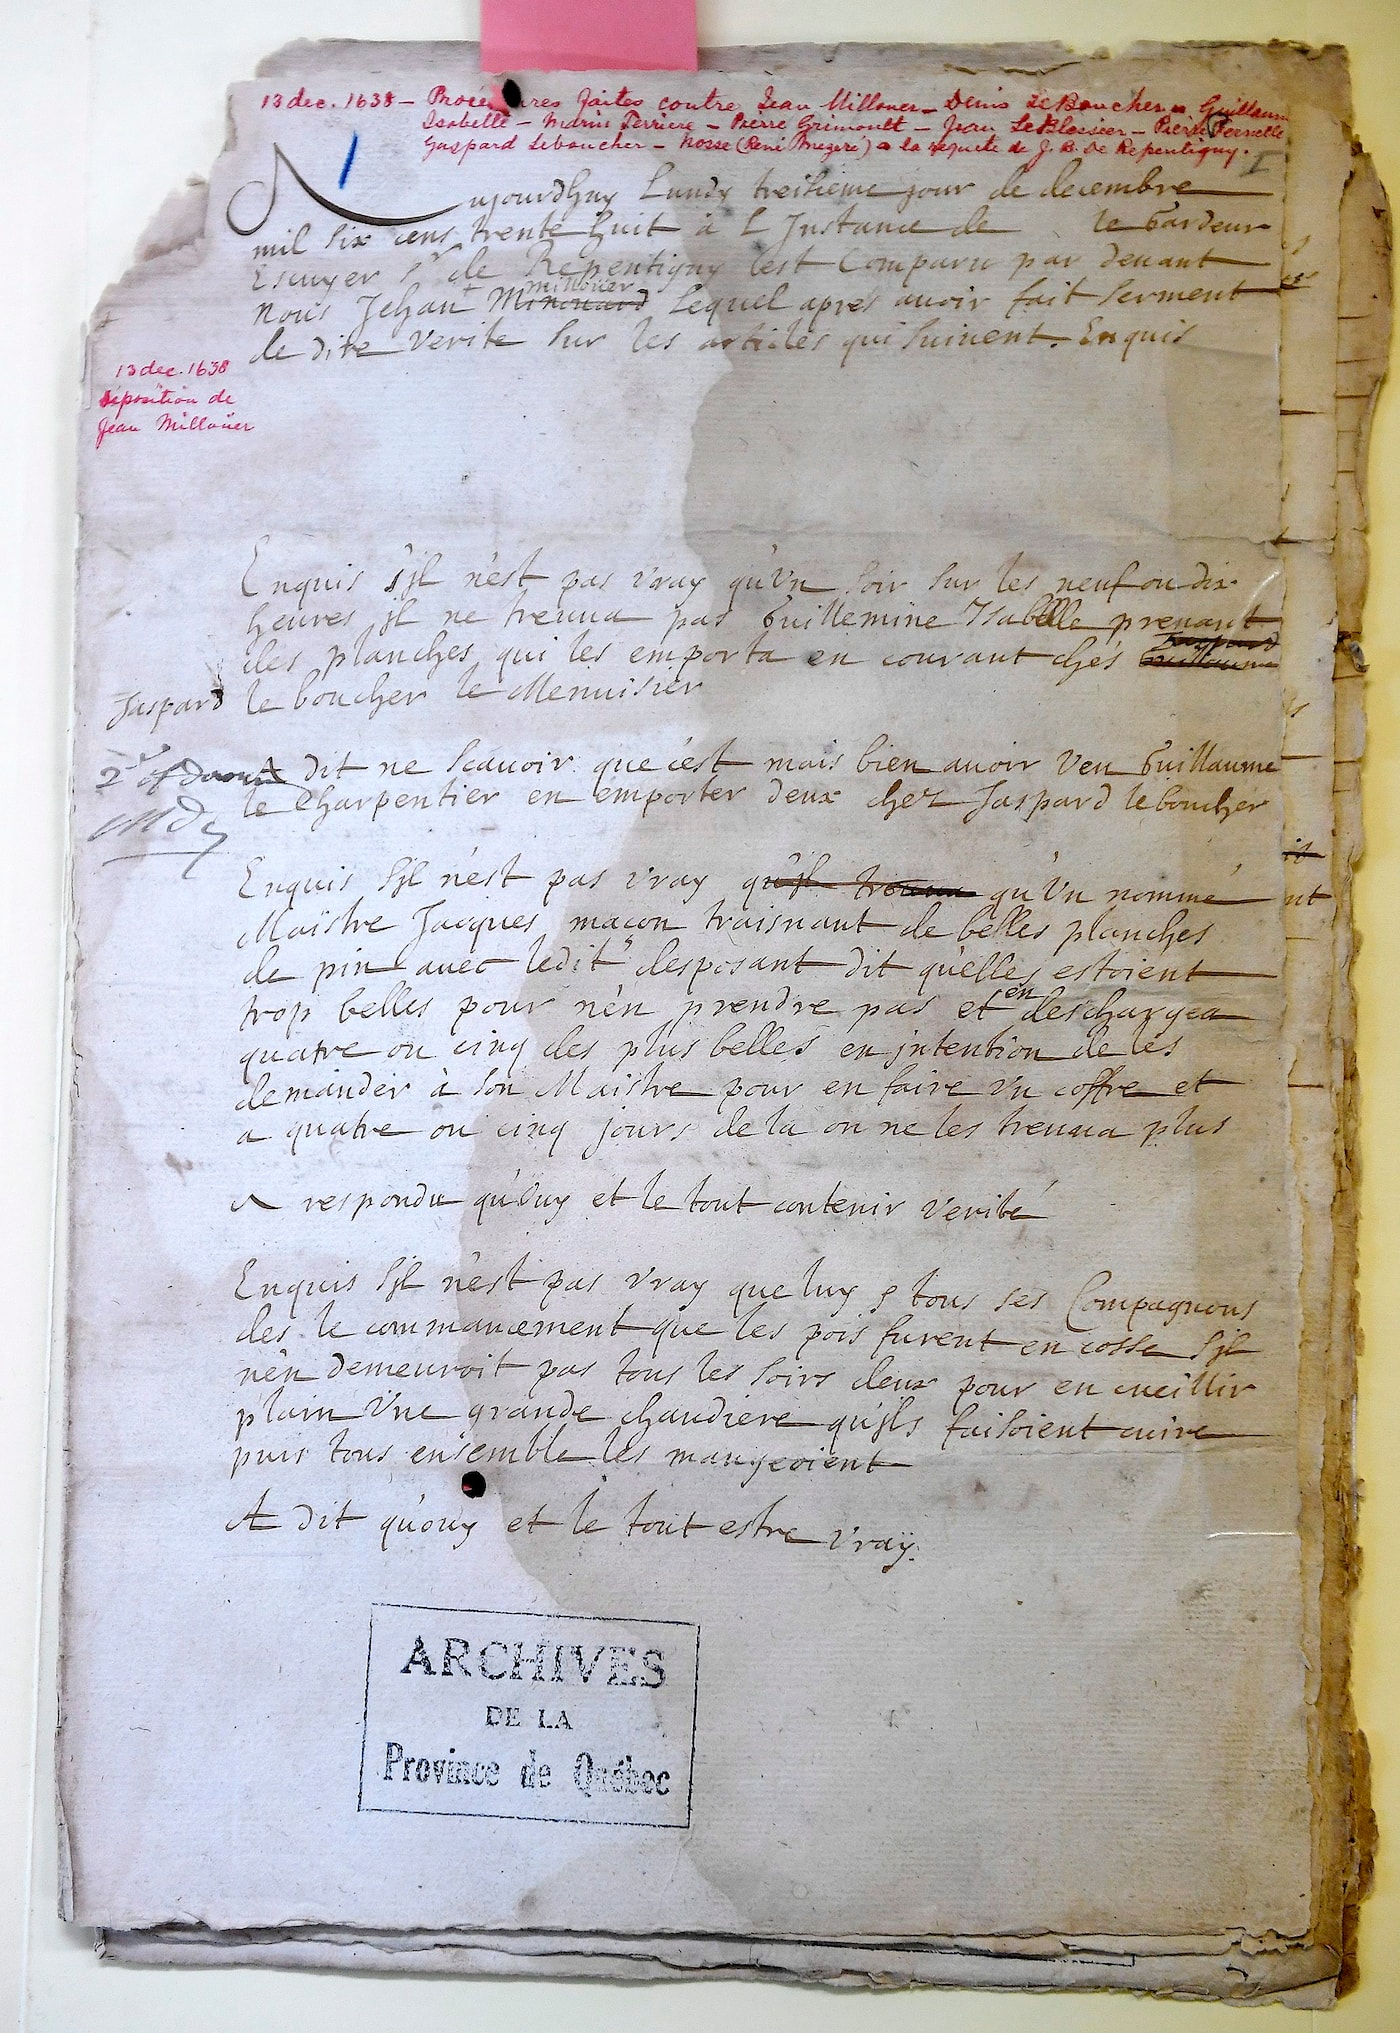 13 dec. 1638 – Procédures faites contre Jean Millouer – Denis LeBoucher – Guillaume
Isabelle – Marin Terriere – Pierre Grimoult – Jean LeBlossier – Pierre Pernelle
Gaspard Leboucher – Nosse (René Mezere) a la requete de J. B. De Repentigny.
1
I
Aujourdhuy Lundy treisieme jour de decembre
mil six cens trente huit à L Jnstance de le Gardeur
Escuyer Sr de Repentigny sest Comparu par deuant
millouer
Nous Jehan Minouard Lequel aprés auoir fait serment
de dire verité sur les articles qui suiuent. Enquis
13 dec. 1638
Déposition de
Jean Millouër
Enquis s'jl nést pas vray qu'vn soir sur les neuf ou dix
heures jl ne treuua pas Guillemine Ysabelle prenant
Gaspard
des planches qui les emporta en courant chés Guillaume
Gaspard le boucher le Menuisier
A dit ne scauoir que cést mais bien auoir veu Guillaume
le Charpentier en emporter deux chez Jaspard le boucher
Enquis Sjl nést pas vray qu'jl treuua qu'vn nommé
Maistre Jacques macon traisnant de belles planches
de pin auéc ledit desposant dit quélles estoient
trop belles pour nén prendre pas et en deschargea
quatre ou cinq des plus belles en jntention de les
demander à son Maistre pour en faire vn coffre et
a quatre ou cinq jours de la on ne les treuua plus
A respondu qu'ouy et le tout contenir verité
Enquis Sjl nést pas vray que luy & tous ses Compagnons
des le commancement que les pois furent en cosse Sjl
nén demeuroit pas tous les soirs deux pour en cueillir
plain vne grande chaudiere qu'jls faisoient cuire
puis tous ensemble les mangeoient
A dit qu'ouy et le tout estre vray.
ARCHIVES
DE LA
Province de Québec